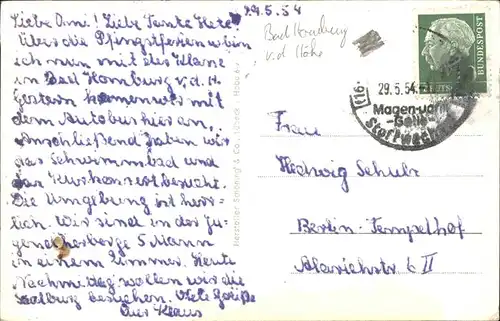 29.5.54
Liebe Omi! Liebe Tante Hete!
Über die Pfingstferien bin
ich nun mit des Klasse
in Bad Homburg v.d.H.
Gestern kamen wir mit
dem Autobus hier an,
Anschließend haben wir
das Schwimmbad und
das Kurkonzert besucht.
Die Umgebung ist herr-
lich. Wir sind in der Ju-
gendherberge 5 Mann
in einem Zimmer. Heute
Nachmittag wollen wir die
Saalburg besuchen. Viele Grüße
Euer Klaus
Hersteller: Schöning & Co., Lübeck
Bad Homburg
v.d. Höhe
(16)
29.5.54
Magen-
Galle
Stoffwechsel
BUNDESPOST
Frau
Hedwig Schulz
Berlin-Tempelhof
Alarichstr. 6 II